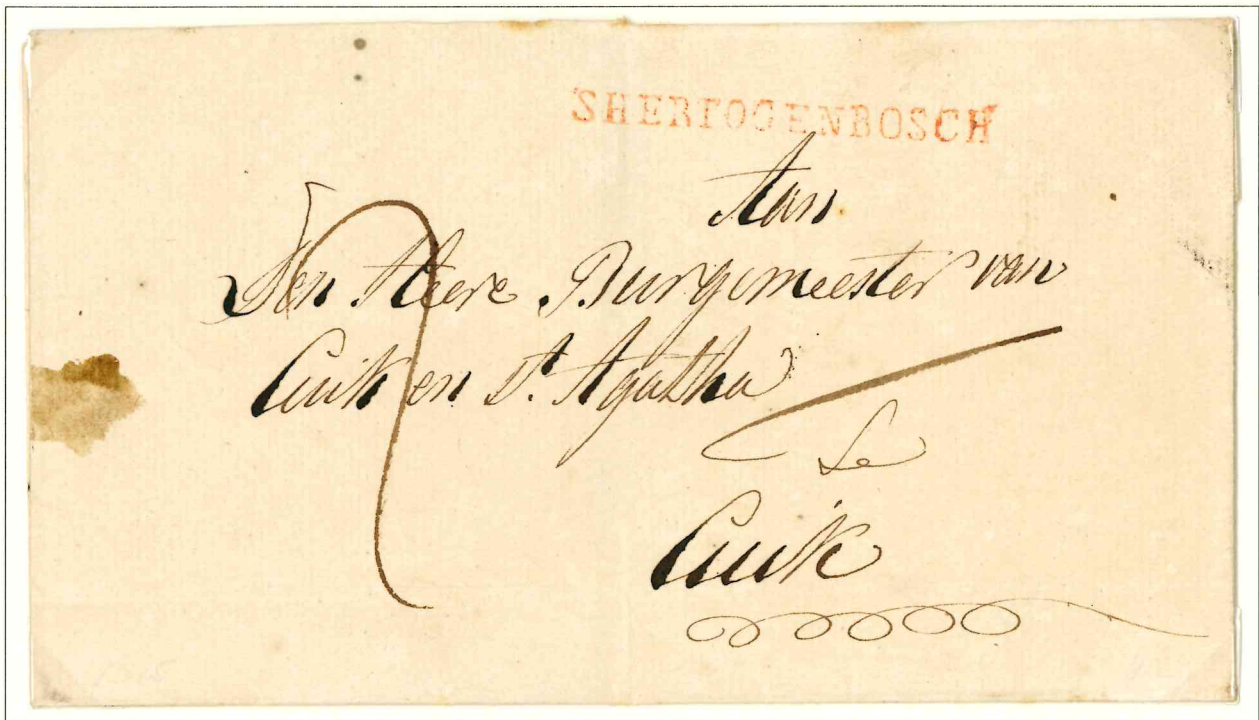 SHERTOGENBOSCH
Aan
Den Heere Burgemeester van
Cuik en St. Agatha
te
Cuik